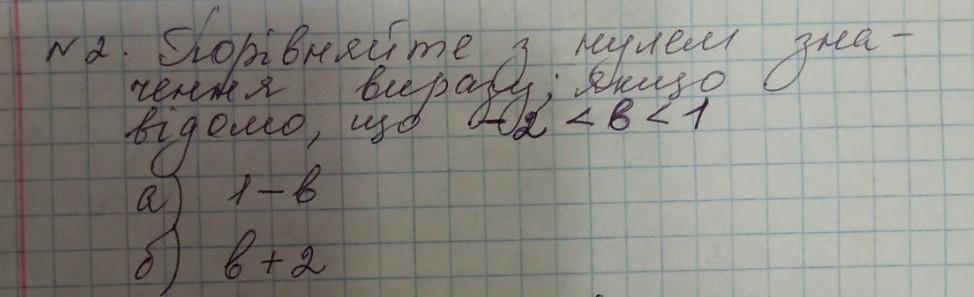 №2. Порівняйте з нулем зна-
чення виразу, якщо
відомо, що -2 < в < 1
а) 1-в
б) в+2